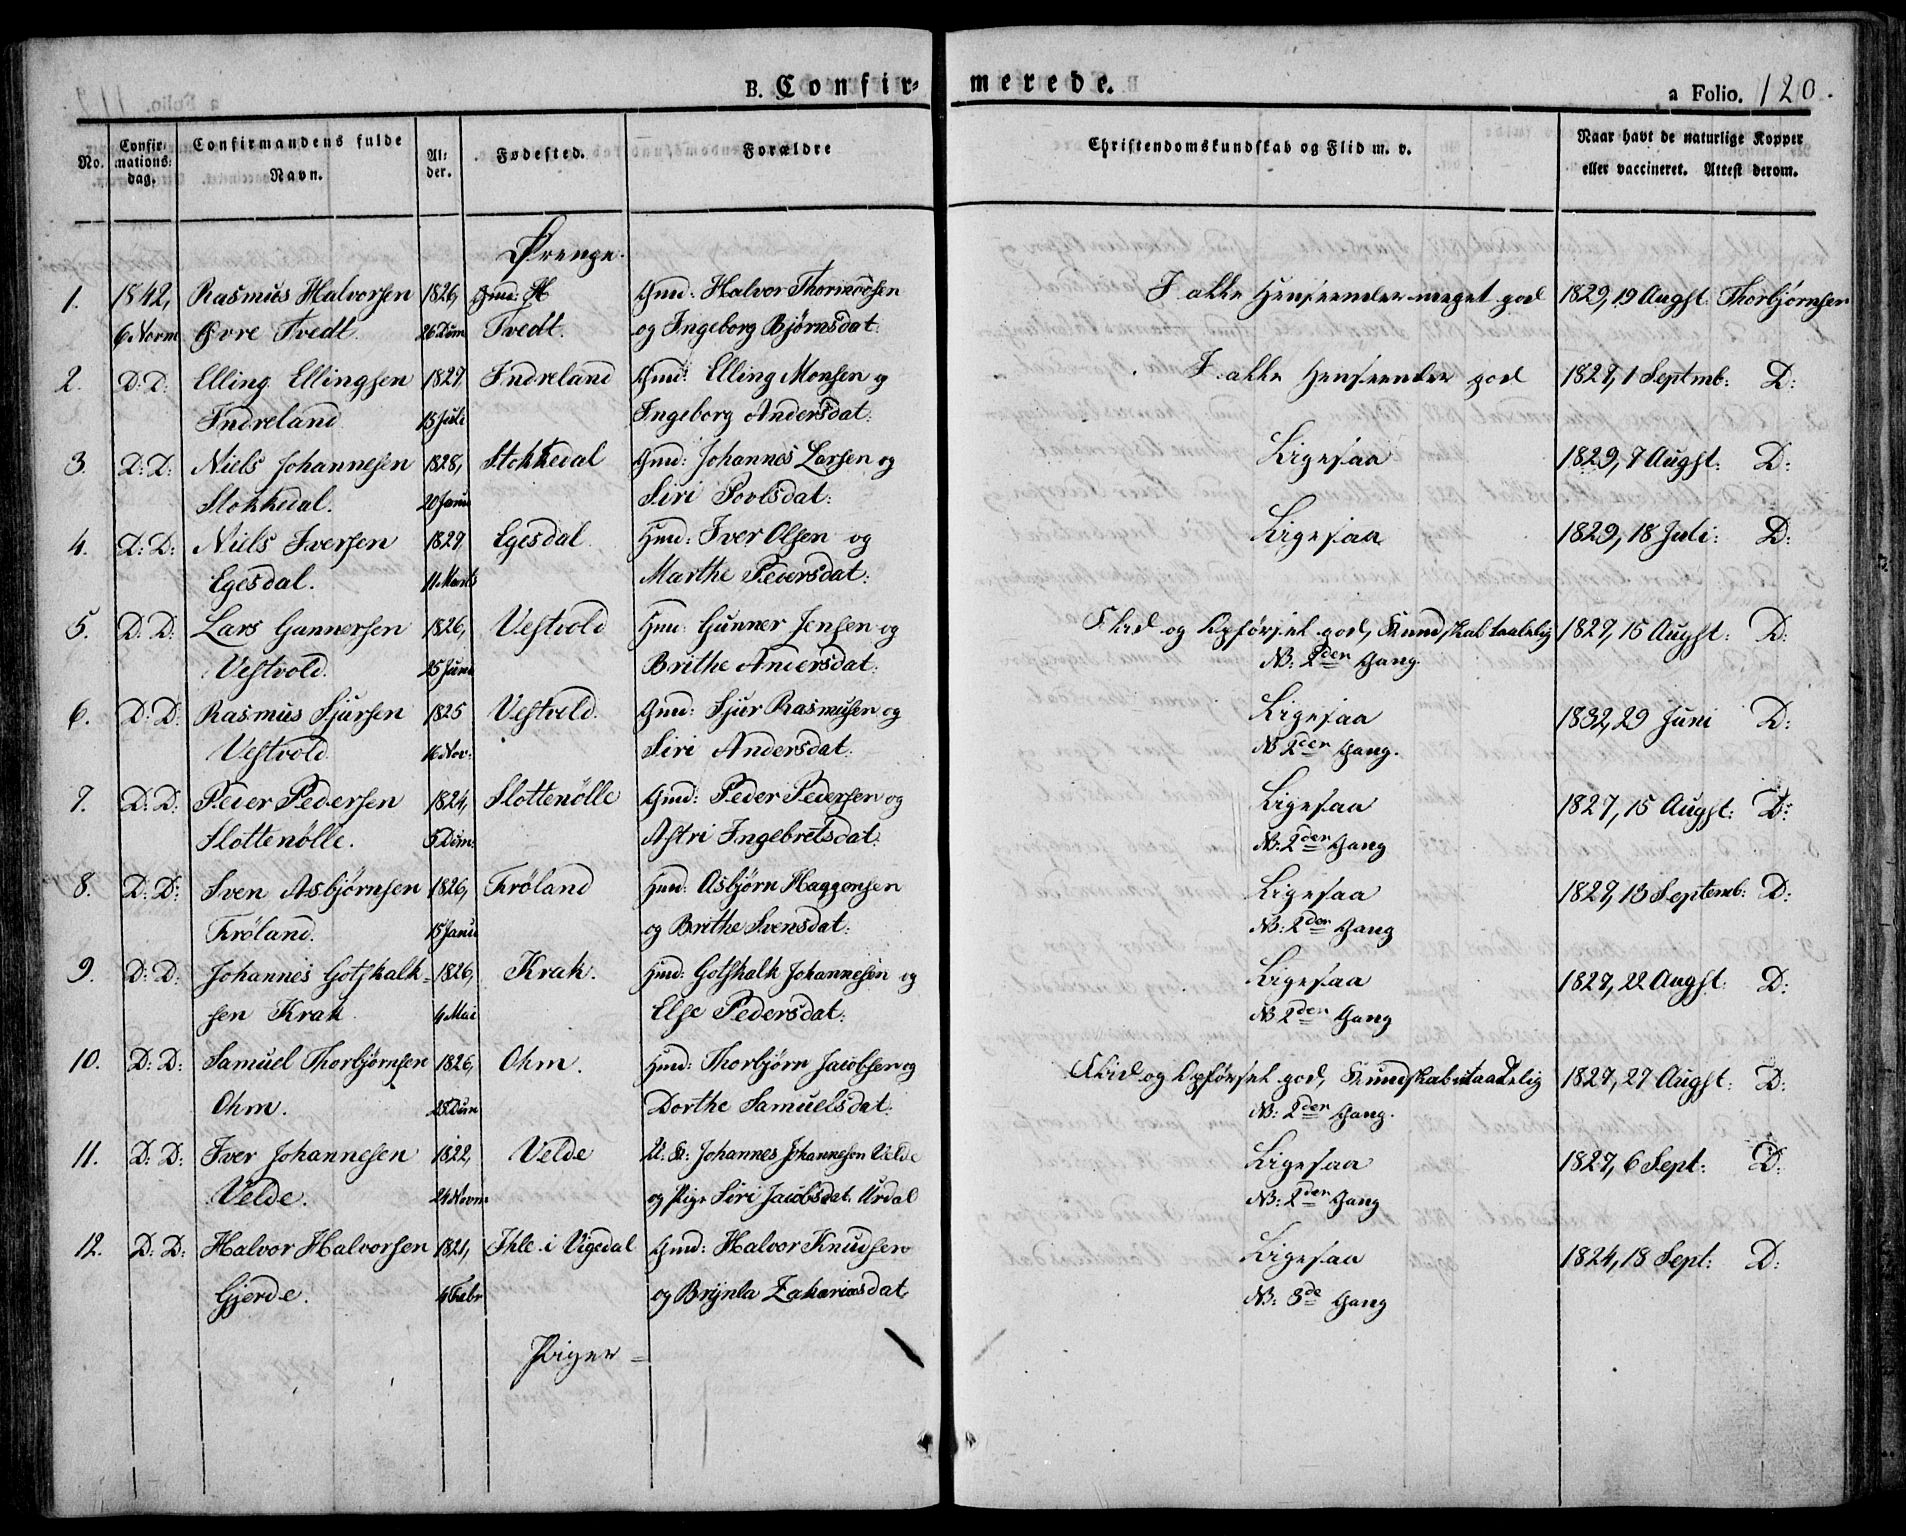 B. Confir-merede.
a Folio. 120.
No. Confir-mations-dag. Confirmandens fulde Navn. Al-der. Fødested. Forældre Christendomskundskab og Flid m. v. Naar havt de naturlige Kopper eller vaccineret. Attest derom.
Drenge.
1. 1842, Rasmus Halvorsen 1826, Gmd: Halvor Thormodsen I alle Henseender meget god 1829, 19 Augst. Thorbjørnsen
6 Novm Øvre Tvedt. 26 Dcm Tvedt. og Ingeborg Bjørnsdat:
2. D: D: Elling Ellingsen 1827. Indreland Gmd: Elling Monsen og I alle Henseender god 1827, 1 Septmb: D:
Indreland 15 Juli Ingeborg Andersdat:
3. D: D: Niels Johannesen 1828, Stokkedal Gmd: Johannes Larsen og Ligesaa 1829, 7 Augst: D:
Stokkedal. 20 Janu Siri Povlsdat:
4. D: D: Niels Iversen 1827 Egesdal Hmd: Iver Olsen og Ligesaa 1829, 18 Juli: D:
Egesdal. 11 Marts Marthe Pedersdat:
5. D: D: Lars Gunnersen 1826, Vestvold Hmd: Gunner Jensen og Flid og Opførsel god, Kundskab taalelig 1827, 15 Augst: D:
Vestvold. 25 Juni Brithe Andersdat: NB: 2den Gang.
6. D: D: Rasmus Sjursen 1825 Vestvold. Gmd: Sjur Rasmusen og Ligesaa 1832, 29 Juni D:
Vestvold 16 Nov: Siri Andersdat. NB 2den Gang.
7. D: D: Peder Pedersen 1824, Slottenølle Gmd: Peder Pedersen og Ligesaa 1827, 15 Augst: D:
Slottenølle. 5 Dcm: Astri Ingebretsdat: NB: 2den Gang
8. D: D: Sven Asbjørnsen 1826, Frøland Hmd: Asbjørn Haggensen Ligesaa 1827, 13 Septemb: D:
Frøland. 15 Janu og Brithe Svensdat: NB: 2den Gang
9. D: D: Johannes Gotskalk- 1826, Krak. Hmd: Gotskalk Johannesen og Ligesaa 1827, 22 Augst: D:
sen Krak 4 Mai Else Pedersdat: NB 2den Gang
10. D: D: Samuel Thorbjørnsen 1826, Ohm. Hmd: Thorbjørn Jacobsen og Flid og Opførsel god, Kundskab taalelig 1827, 27 Augst: D:
Ohm. Dorthe Samuelsdat: NB: 2den Gang.
11. D: D: Iver Johannesen 1822, Velde U: K: Johannes Johannesen Velde Ligesaa 1827, 6 Sept: D:
Velde. 24 Novm og Pige Siri Jacobsdat. Urdal NB: 2den Gang
12. D: D: Halvor Halvorsen 1821, Ihle i Vigedal Gmd: Halvor Knudsen Ligesaa 1824, 18 Sept: D:
Gjerde. 4 Febr og Brynla Zakariasdat NB: 3de Gang
Piger